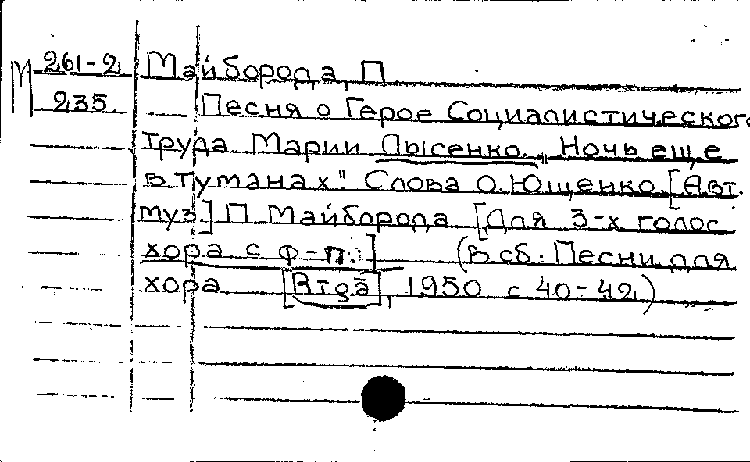 М 261-2 Майборода, П.
235. Песня о Герое Социалистического
труда Марии Лысенко. „Ночь еще
в туманах". Слова О. Ющенко. [Авт.
муз.] П. Майборода [Для 3-х голос
хора с ф-п.] (В сб.: Песни для
хора. 1950 с 40-42)